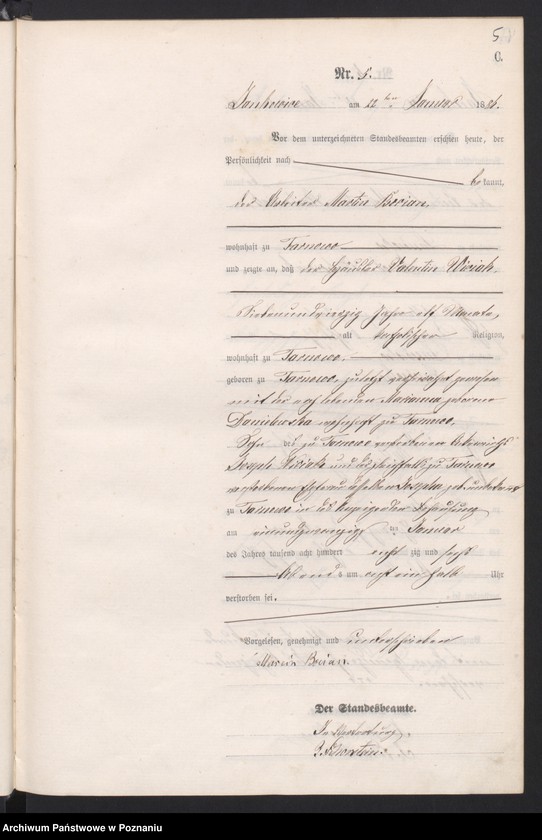 5
C.
Nr. 5.
Jankowice am 22ten Januar 1886.
Vor dem unterzeichneten Standesbeamten erschien heute, der
Persönlichkeit nach
bekannt,
der Arbeiter Martin Bocian,
wohnhaft zu Tarnowo
und zeigte an, daß der Häusler Valentin Wiciak,
Siebenundvierzig Jahre elf Monate,
alt katholischer Religion,
wohnhaft zu Tarnowo,
geboren zu Tarnowo, zuletzt verheirathet gewesen
mit der noch lebenden Marianna geborene
Danielewska wohnhaft zu Tarnowo,
Sohn des zu Tarnowo verstorbenen
Joseph Wiciak und der gleichfalls zu Tarnowo
verstorbenen Ehefrau desselben Josepha geb. unbekannt
zu Tarnowo in des Anzeigenden Behausung
am einundzwanzigsten Januar
des Jahres tausend acht hundert achtzig und sechs
Abends um acht ein halb Uhr
verstorben sei.
Vorgelesen, genehmigt und unterschrieben
Marcin Bocian.
Der Standesbeamte.
In Vertretung
Archiwum Państwowe w Poznaniu